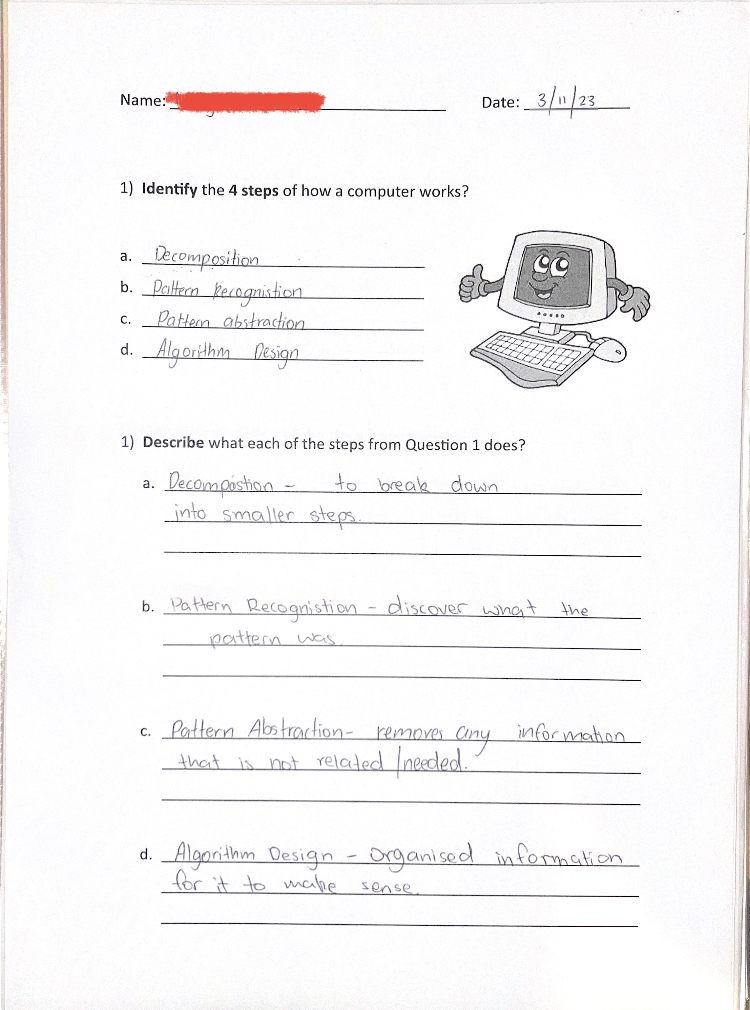 Name:
Date: 3/11/23
1) Identify the 4 steps of how a computer works?
a. Decomposition
b. Pattern Recognistion
c. Pattern abstraction
d. Algorithm Design
1) Describe what each of the steps from Question 1 does?
a. Decompostion - to break down
into smaller steps.
b. Pattern Recognistion - discover what the
pattern was.
c. Pattern Abstraction- removes any information
that is not related/needed.
d. Algorithm Design - Organised information
for it to make sense.